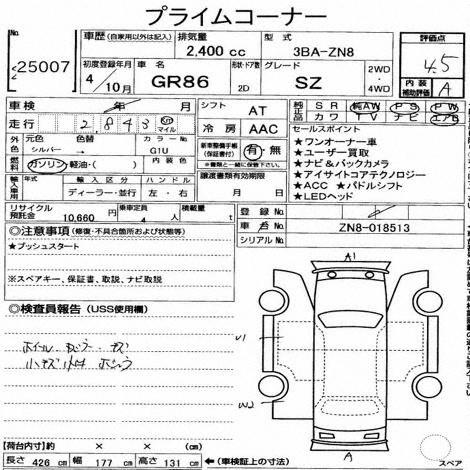 プライムコーナー
25007
車歴 (自家用以外は記入)
排気量
2,400 cc
型式
3BA-ZN8
評価点
4.5
初度登録年月
4/10月
車名
GR86
形状・ドア数
2D
グレード
SZ
2WD・4WD
内装補助評価
A
車検 年 月
シフト AT
純正品 SR 純AW PS PW
革 カワ TV ナビ エアB
走行 2,843 km マイル
冷房 AAC
セールスポイント
★ワンオーナー車
★ユーザー買取
★ナビ&バックカメラ
★アイサイトコアテクノロジー
★ACC ★パドルシフト
★LEDヘッド
外装 元色 シルバー → 色替 カラーNo. G1U 内装色
新車整備手帳(保証書付) 有・無
※書類と一緒に保管下さい
燃料 ガソリン 軽油・( )
輸入車用 年式 輸入区分 ディーラー・並行 ハンドル 左・右
譲渡書類有効期限
年 月 日
リサイクル預託金 10,660 円
乗車定員 4 人
積載量 t
登録No.
車台No. ZN8-018513
シリアルNo.
◎注意事項 (修復・不具合箇所および状態等)
★プッシュスタート
※スペアキー、保証書、取説、ナビ取説
◎検査員報告 (USS使用欄)
ホイール
小キズ
A1
U1
W2
A
スペア
【荷台内寸】 × ×
長さ 426 cm 幅 177 cm 高さ 131 cm ←(車検証上の寸法)